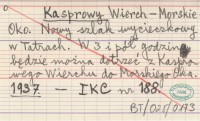 Kasprowy Wierch – Morskie
Oko. Nowy szlak wycieczkowy
w Tatrach. W 3 i pół godziny
będzie można dotrzeć z Kaspro-
wego Wierchu do Morskiego Oka.
1937 – IKC nr 188.
BT/021/0173